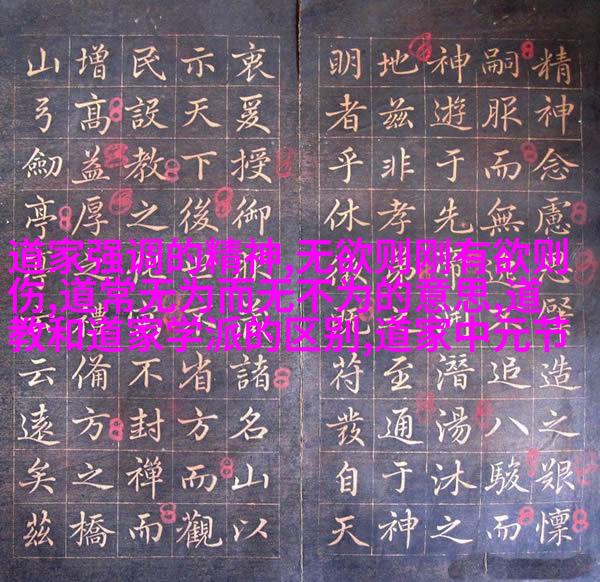 道家强调的精神,无欲则刚有欲则
伤,道常无为而无不为的意思,道
教和道家学派的区别,道家中元节
精神念慮造之艱懍
嗣服而無追八駿而
神遊于先潛湯沐之
地茲非孝至通于神
明者乎休符發自天
衷爰授御諸名山以
示天下後省方而觀
民設教之不封禪而
增高益厚之禮備方之橋
山弓劍亭云遠矣茲